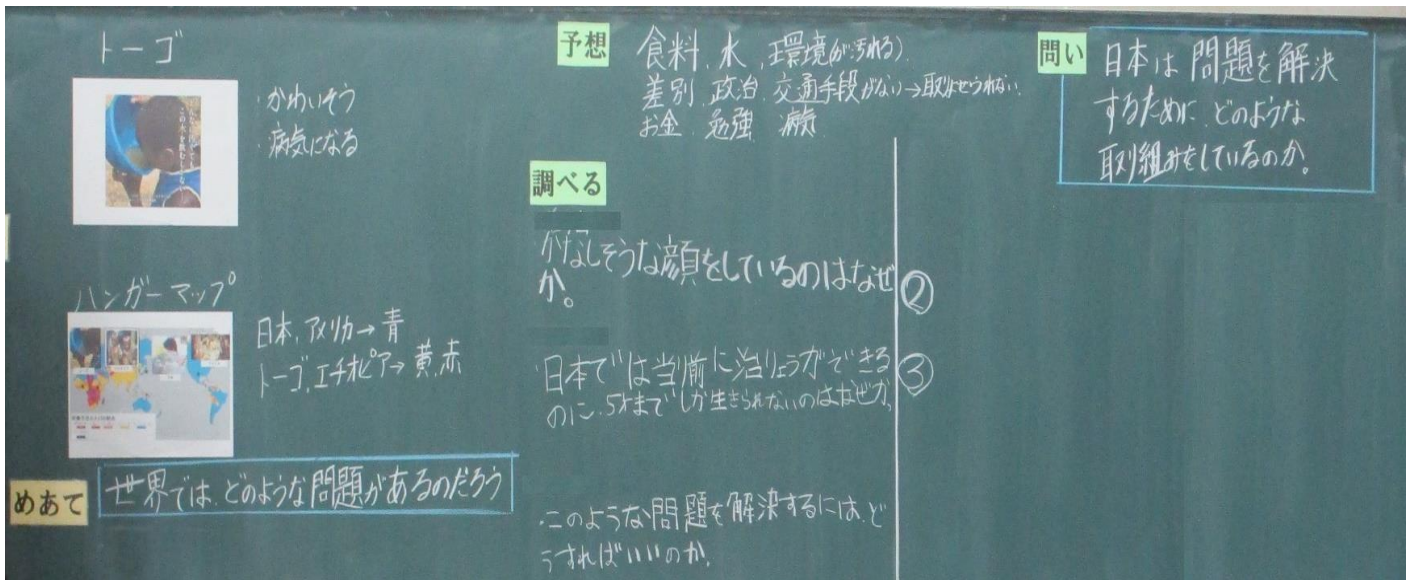 トーゴ
・かわいそう
・病気になる
ハンガーマップ
日本、アメリカ→青
トーゴ、エチオピア→黄、赤
めあて
世界では、どのような問題があるのだろう
予想
食料、水、環境(が汚れる)
差別、政治、交通手段がない→取りよせられない
お金、勉強
調べる
かなしそうな顔をしているのはなぜ
か。
②
・日本では当り前に治りょうができる
のに、5才までしか生きられないのはなぜか。
③
・このような問題を解決するには、ど
うすればいいのか。
問い
日本は問題を解決
するために、どのような
取り組みをしているのか。